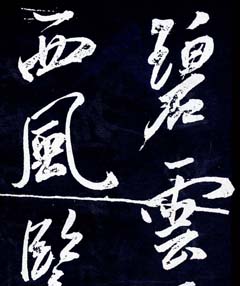 碧雲
西風